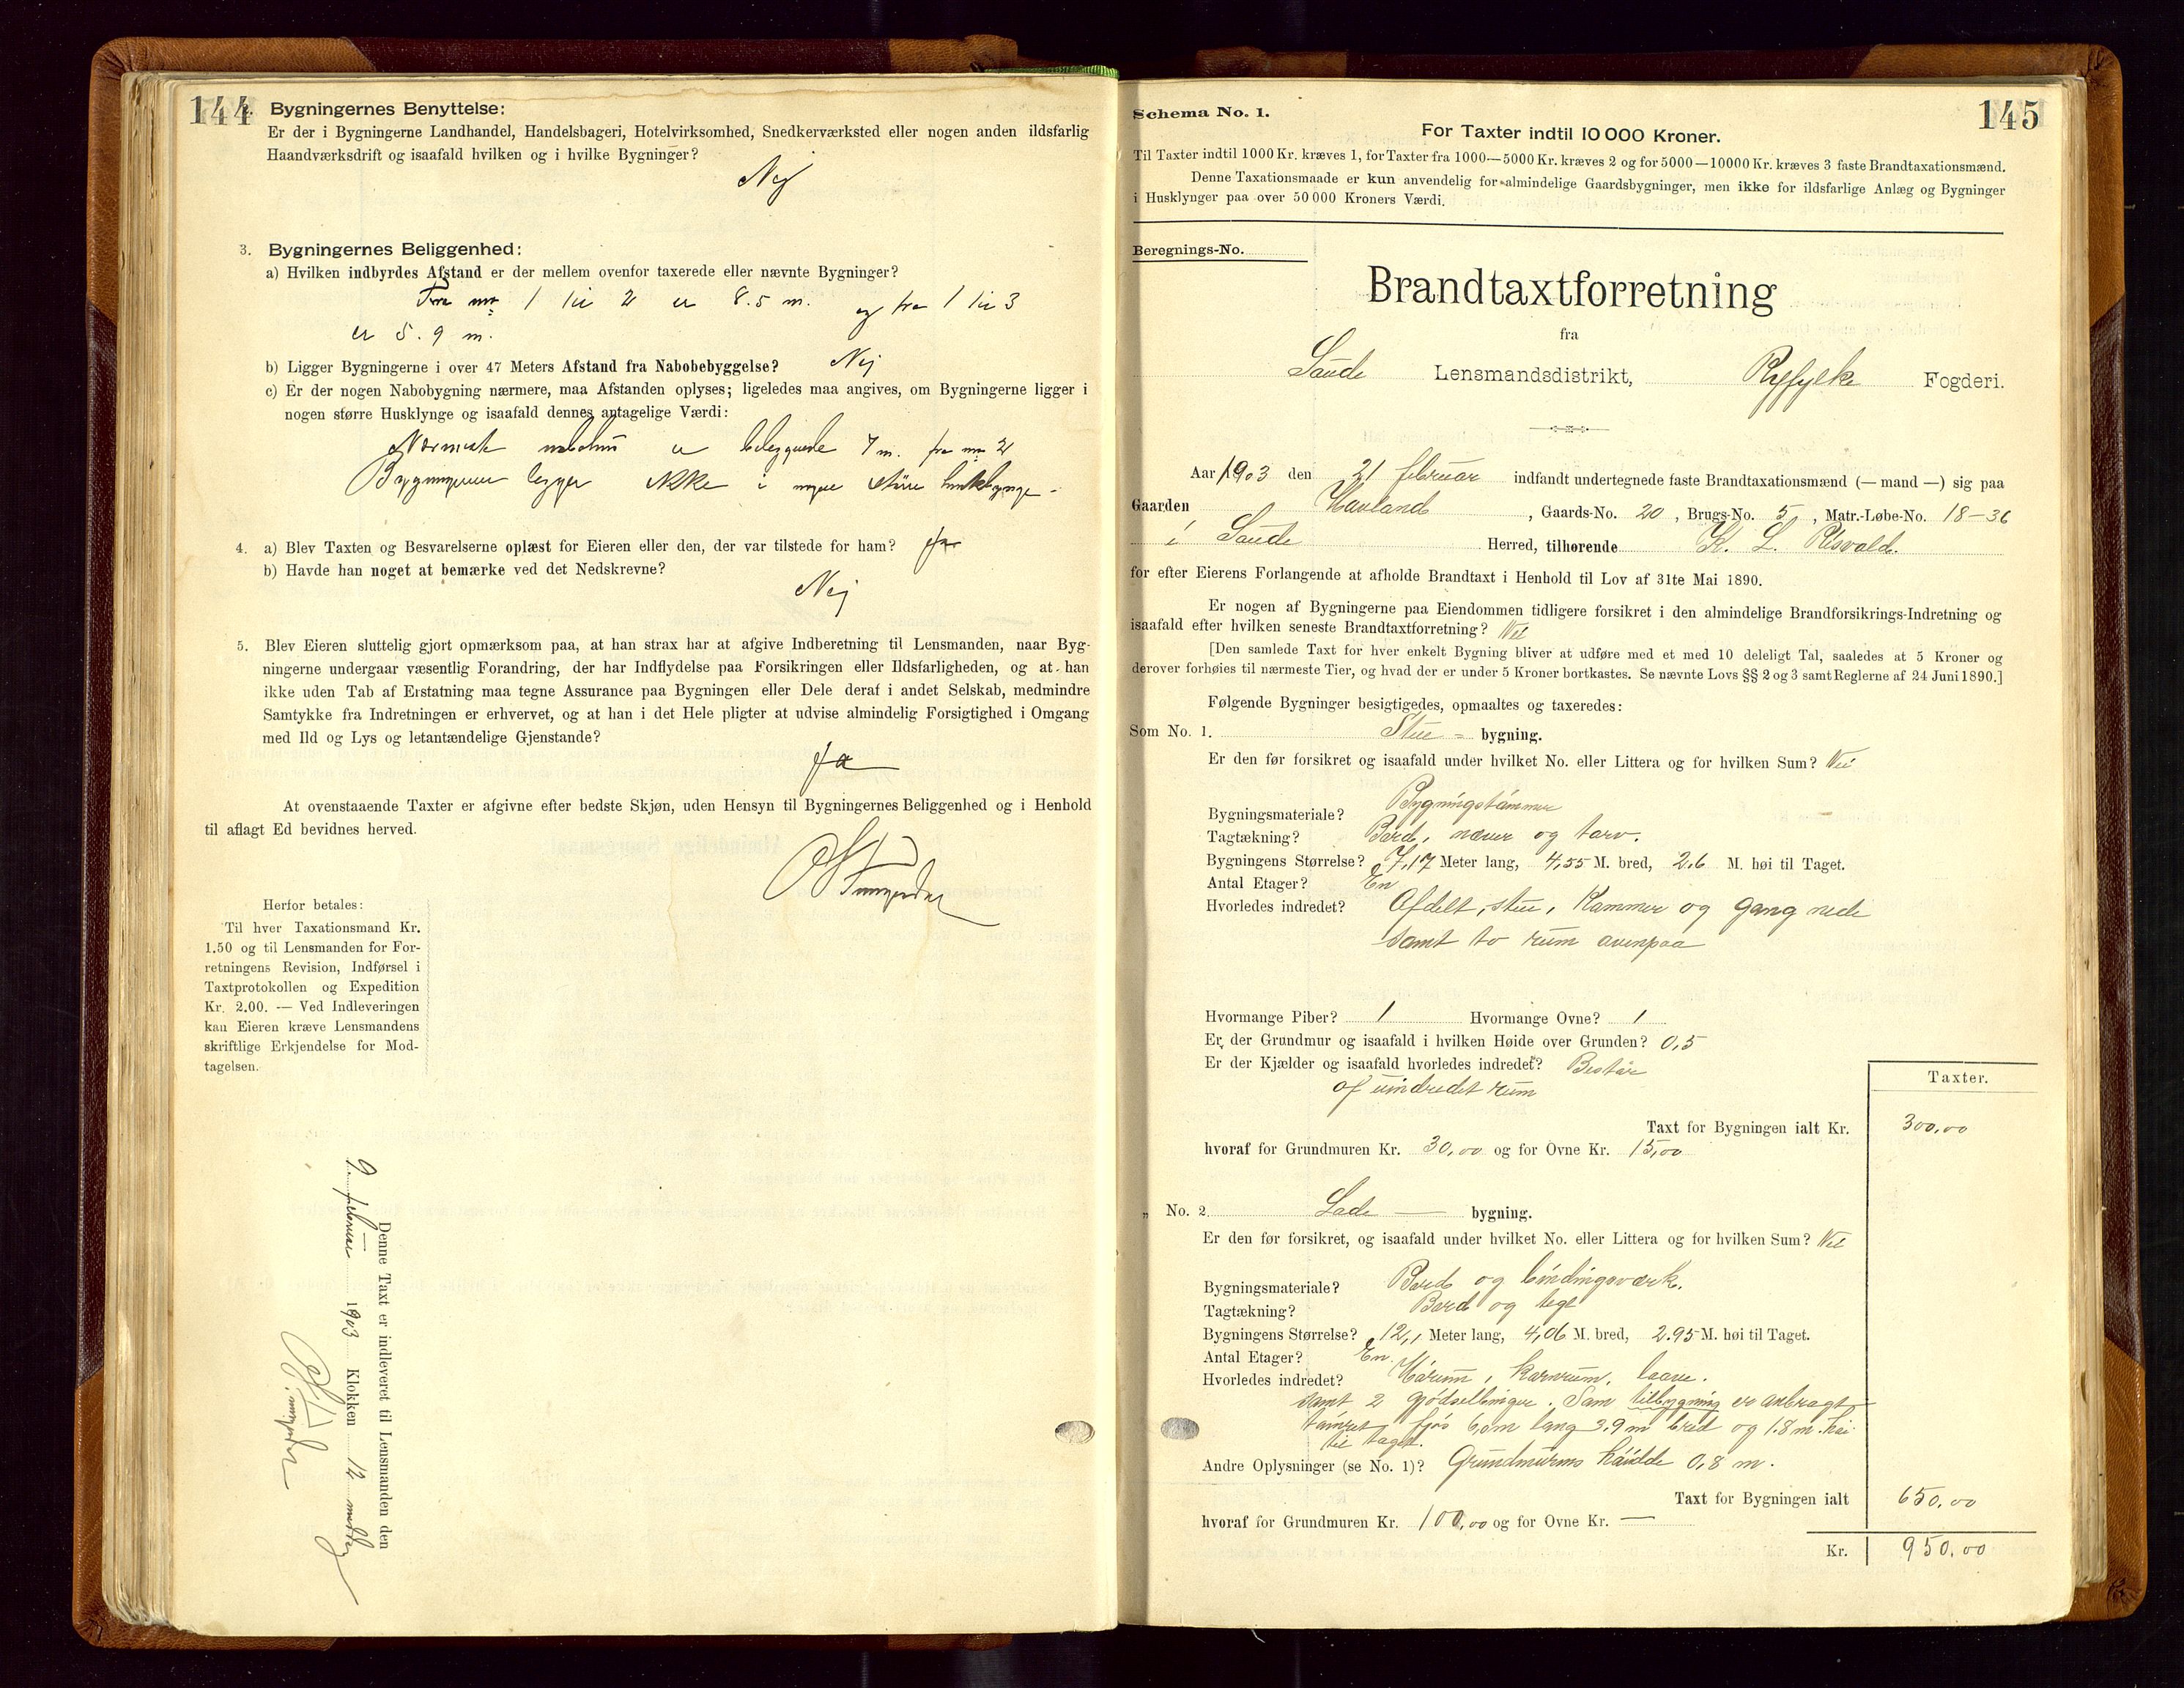 144
2. Bygningernes Benyttelse:
Er der i Bygningerne Landhandel, Handelsbageri, Hotelvirksomhed, Snedkerværksted eller nogen anden ildsfarlig
Haandværksdrift og isaafald hvilken og i hvilke Bygninger?
Nej
3. Bygningernes Beliggenhed:
a) Hvilken indbyrdes Afstand er der mellem ovenfor taxerede eller nævnte Bygninger?
Fra no 1 til 2 er 8.5 m. og fra 1 til 3
er 5.9 m.
b) Ligger Bygningerne i over 47 Meters Afstand fra Nabobebyggelse? Nej
c) Er der nogen Nabobygning nærmere, maa Afstanden oplyses; ligeledes maa angives, om Bygningerne ligger i
nogen større Husklynge og isaafald dennes antagelige Værdi:
Nærmeste nabohus er beliggende 7 m. fra no 2
Bygningerne ligger ikke i nogen større husklynge -
4. a) Blev Taxten og Besvarelserne oplæst for Eieren eller den, der var tilstede for ham? Ja
b) Havde han noget at bemærke ved det Nedskrevne?
Nej
5. Blev Eieren sluttelig gjort opmærksom paa, at han strax har at afgive Indberetning til Lensmanden, naar Byg-
ningerne undergaar væsentlig Forandring, der har Indflydelse paa Forsikringen eller Ildsfarligheden, og at han
ikke uden Tab af Erstatning maa tegne Assurance paa Bygningen eller Dele deraf i andet Selskab, medmindre
Samtykke fra Indretningen er erhvervet, og at han i det Hele pligter at udvise almindelig Forsigtighed i Omgang
med Ild og Lys og letantændelige Gjenstande?
Ja
At ovenstaaende Taxter er afgivne efter bedste Skjøn, uden Hensyn til Bygningernes Beliggenhed og i Henhold
til aflagt Ed bevidnes herved.
Herfor betales:
Til hver Taxationsmand Kr.
1.50 og til Lensmanden for For-
retningens Revision, Indførsel i
Taxtprotokollen og Expedition
Kr. 2.00. — Ved Indleveringen
kan Eieren kræve Lensmandens
skriftlige Erkjendelse for Mod-
tagelsen.
Denne Taxt er indleveret til Lensmanden den
9 februar 1903 Klokken 12 middag
145
Schema No. 1.
For Taxter indtil 10 000 Kroner.
Til Taxter indtil 1000 Kr. kræves 1, for Taxter fra 1000—5000 Kr. kræves 2 og for 5000—10000 Kr. kræves 3 faste Brandtaxationsmænd.
Denne Taxationsmaade er kun anvendelig for almindelige Gaardsbygninger, men ikke for ildsfarlige Anlæg og Bygninger
i Husklynger paa over 50 000 Kroners Værdi.
Beregnings-No.
Brandtaxtforretning
fra
Saude Lensmandsdistrikt, Ryfylke Fogderi.
Aar 1903 den 21 februar indfandt undertegnede faste Brandtaxationsmænd (— mand —) sig paa
Gaarden Havland, Gaards-No. 20, Brugs-No. 5, Matr.-Løbe-No. 18-36
i Saude Herred, tilhørende K. L. Risvold.
for efter Eierens Forlangende at afholde Brandtaxt i Henhold til Lov af 31te Mai 1890.
Er nogen af Bygningerne paa Eiendommen tidligere forsikret i den almindelige Brandforsikrings-Indretning og
isaafald efter hvilken seneste Brandtaxtforretning? Nei
[Den samlede Taxt for hver enkelt Bygning bliver at udføre med et med 10 deleligt Tal, saaledes at 5 Kroner og
derover forhøies til nærmeste Tier, og hvad der er under 5 Kroner bortkastes. Se nævnte Lovs §§ 2 og 3 samt Reglerne af 24 Juni 1890.]
Følgende Bygninger besigtigedes, opmaaltes og taxeredes:
Som No. 1. Stue = bygning.
Er den før forsikret og isaafald under hvilket No. eller Littera og for hvilken Sum? Nei
Bygningsmateriale? Bygningstømmer
Tagtækning? Bord, næver og torv.
Bygningens Størrelse? 7,17 Meter lang, 4,55 M. bred, 2.6 M. høi til Taget.
Antal Etager? En
Hvorledes indredet? Afdelt, stue, Kammer og gang nede
samt to rum ovenpaa
Hvormange Piber? 1 Hvormange Ovne? 1
Er der Grundmur og isaafald i hvilken Høide over Grunden? 0,5
Er der Kjælder og isaafald hvorledes indredet? Består
af uindredet rum
Taxter.
Taxt for Bygningen ialt Kr. 300,00
hvoraf for Grundmuren Kr. 30,00 og for Ovne Kr. 15,00
„ No. 2. Lade — bygning.
Er den før forsikret, og isaafald under hvilket No. eller Littera og for hvilken Sum? Nei
Bygningsmateriale? Bord og bindingsværk.
Tagtækning? Bord og tegl
Bygningens Størrelse? 12,1 Meter lang, 4,06 M. bred, 2.95 M. høi til Taget.
Antal Etager? En.
Hvorledes indredet? Hørum, kornrum, laave.
samt 2 gjødselbinger. Som tilbygning er anbragt
tømret fjøs 6,0 m lang 3.9 m bred og 1.8 m. høi
til taget.
Andre Oplysninger (se No. 1)? Grundmurens høidde 0,8 m.
Taxt for Bygningen ialt 650,00
hvoraf for Grundmuren Kr. 100,00 og for Ovne Kr. —
Kr. 950,00